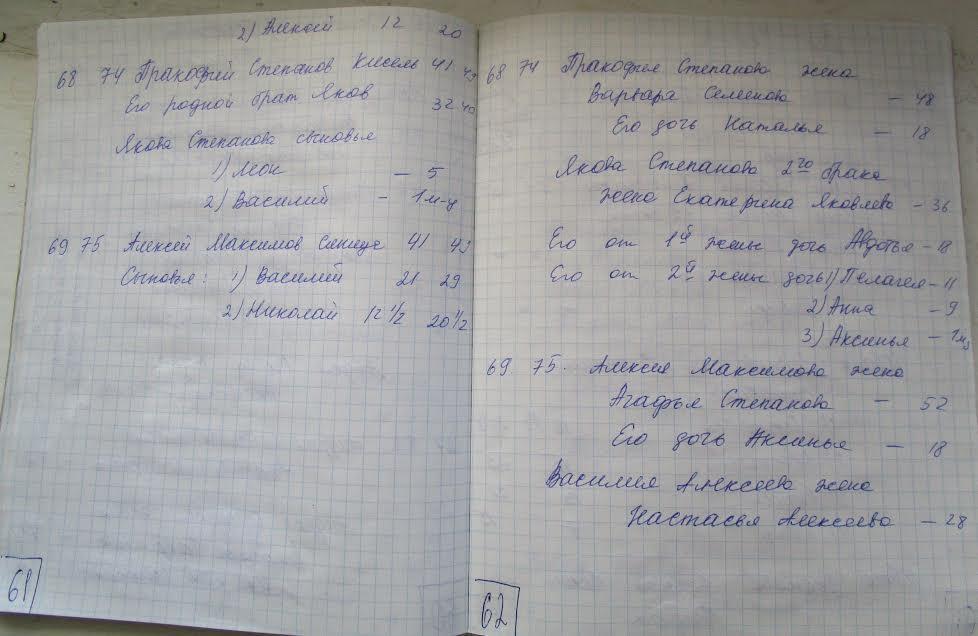 2) Алексей 12 20
68 74 Пракофий Степанов Кисель 41 49
Его родной брат Яков 32 40
Якова Степанова сыновья
1) Леон – 5
2) Василий – 1 м-ц
69 75 Алексей Максимов Синице 41 49
Сыновья: 1) Василий 21 29
2) Николай 12 1/2 20 1/2
61
68 74 Пракофия Степанова жена
Варвара Семенова – 48
Его дочь Наталья – 18
Якова Степанова 2го брака
жена Екатерина Яковлева – 36
Его от 1й жены дочь Авдотья – 18
Его от 2й жены дочь 1) Пелагея – 11
2) Анна – 9
3) Аксинья –
69 75. Алексея Максимова жена
Агафья Степанова – 52
Его дочь Аксинья – 18
Василия Алексеева жена
Настасья Алексеева – 28
62